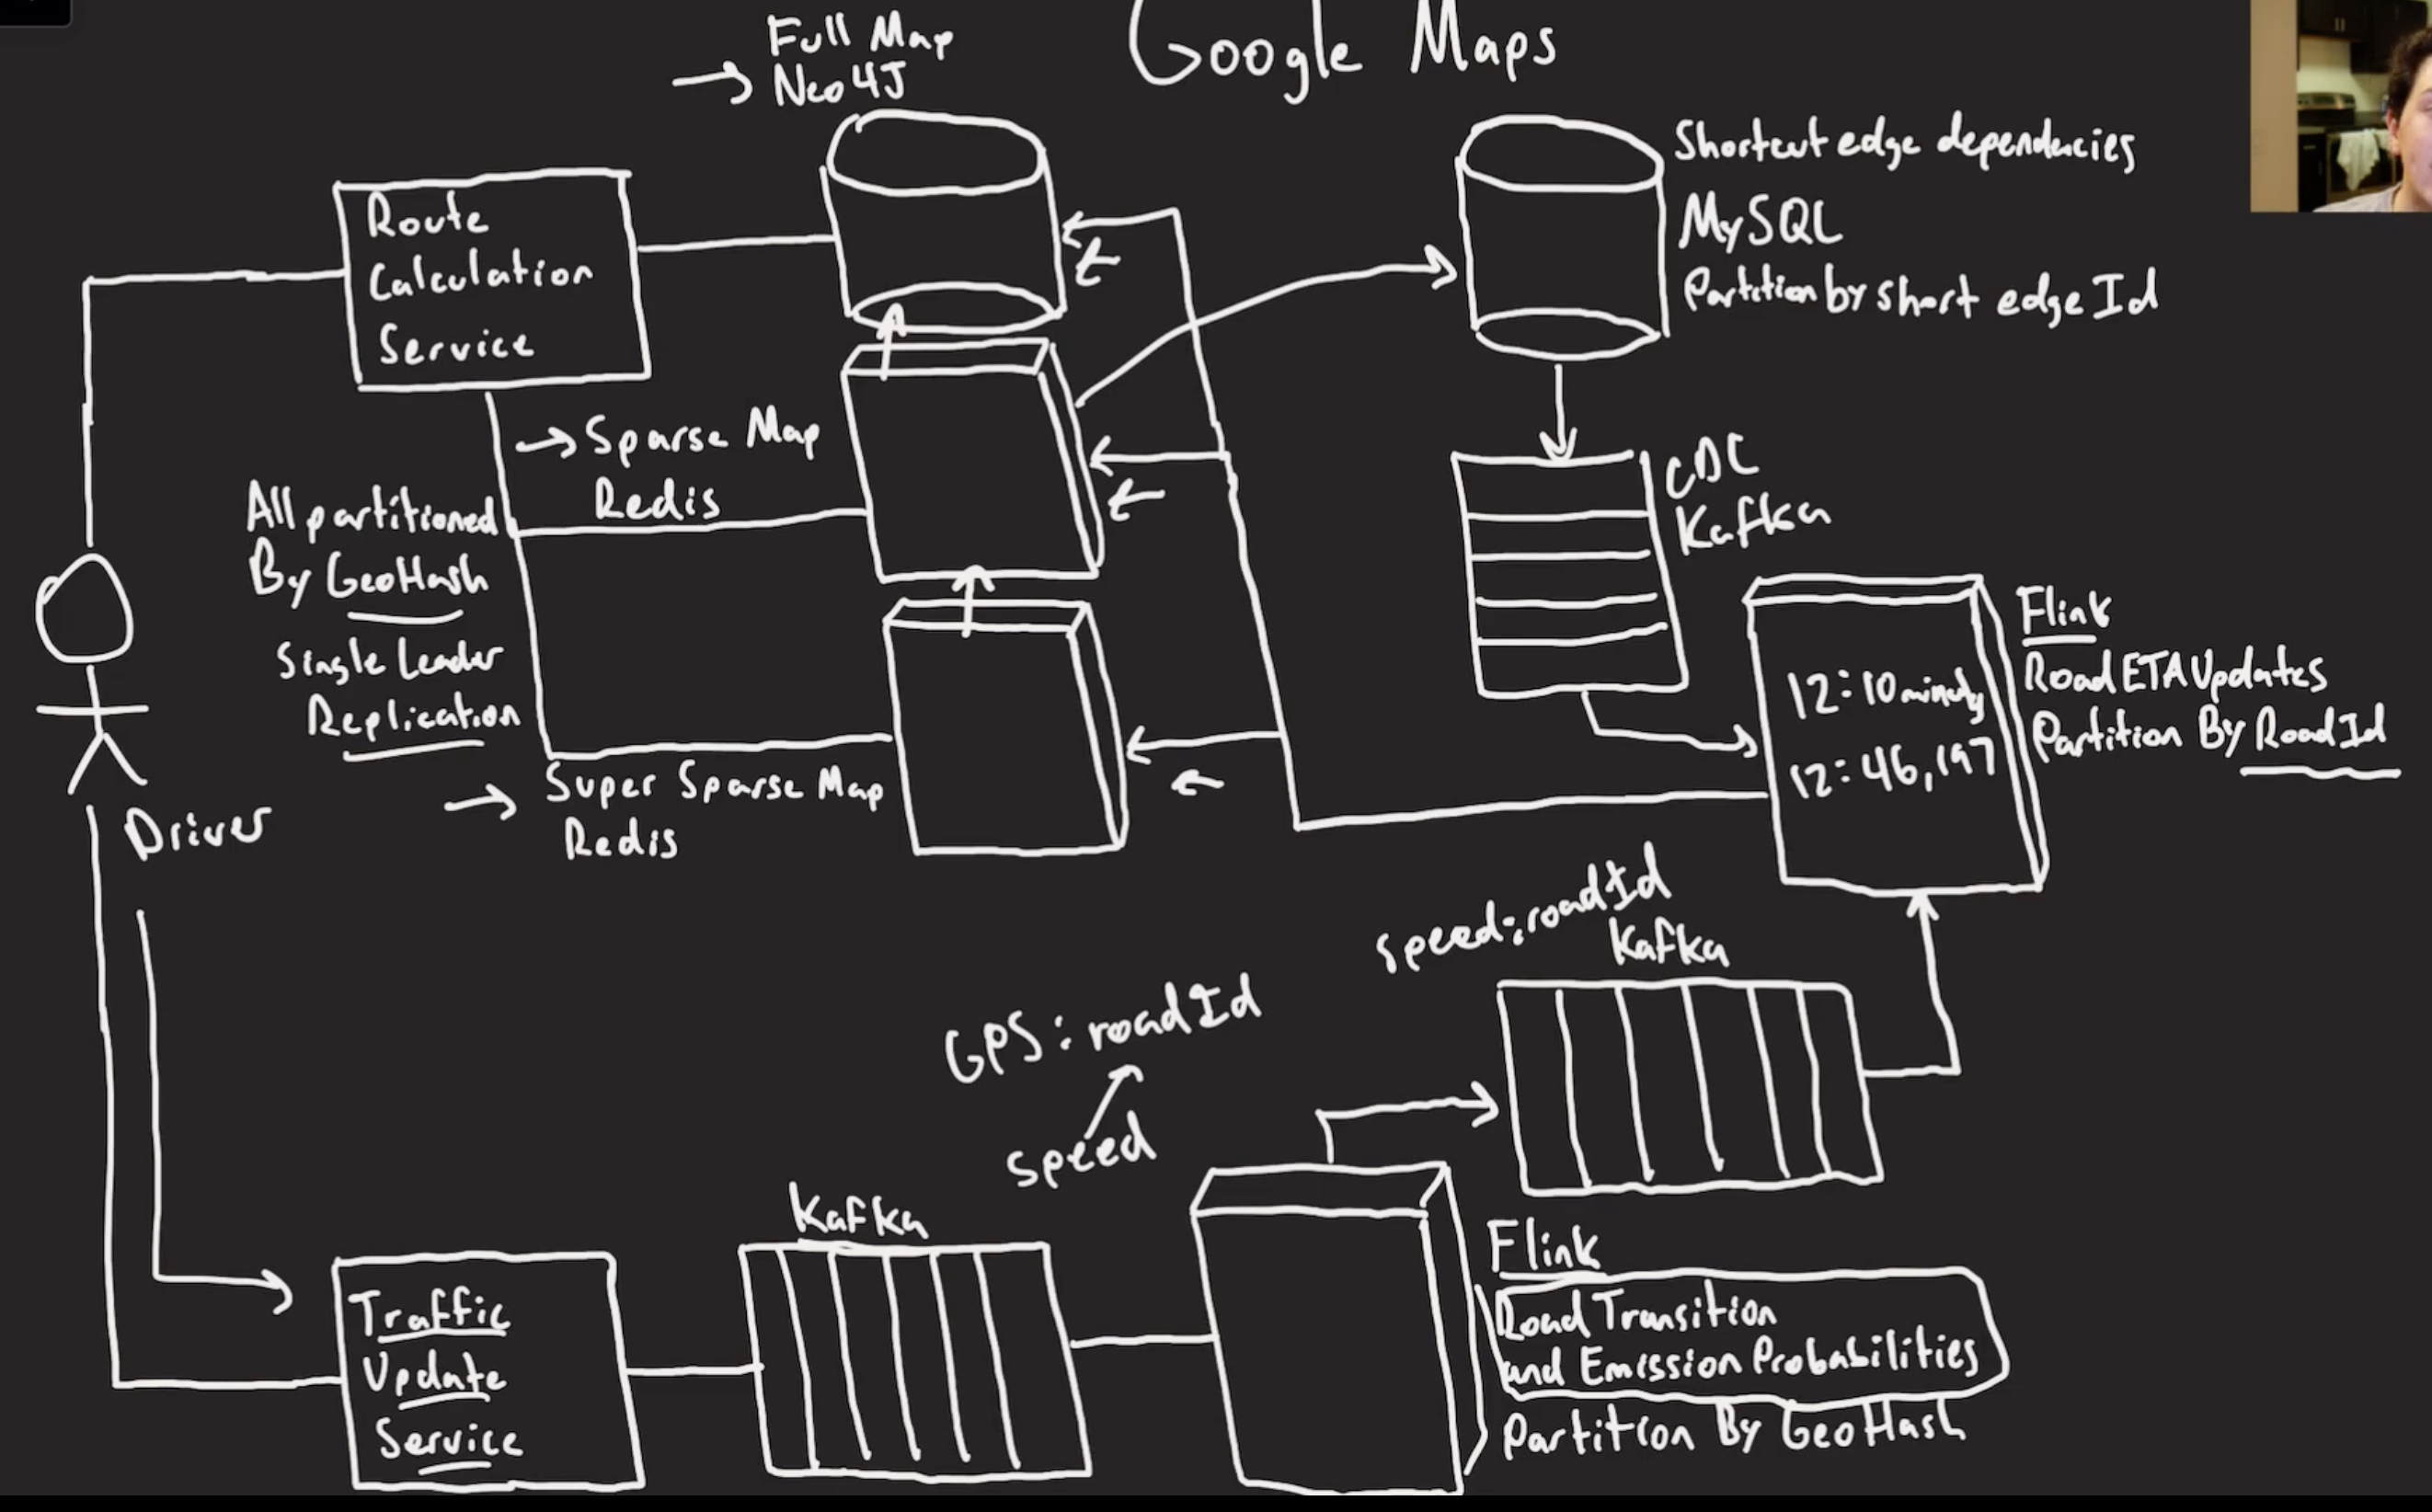 Google Maps
Full Map
Neo4J
Shortcut edge dependencies
MySQL
Partition by short edge Id
Route
Calculation
Service
Sparse Map
Redis
All partitioned
By GeoHash
Single Leader
Replication
CDC
Kafka
Flink
Road ETA Updates
Partition By Road Id
12:10 minutes
12:46,197
Super Sparse Map
Redis
Driver
speed:roadId
Kafka
GPS:roadId
speed
Kafka
Traffic
Update
Service
Flink
Road Transition
and Emission Probabilities
Partition By GeoHash